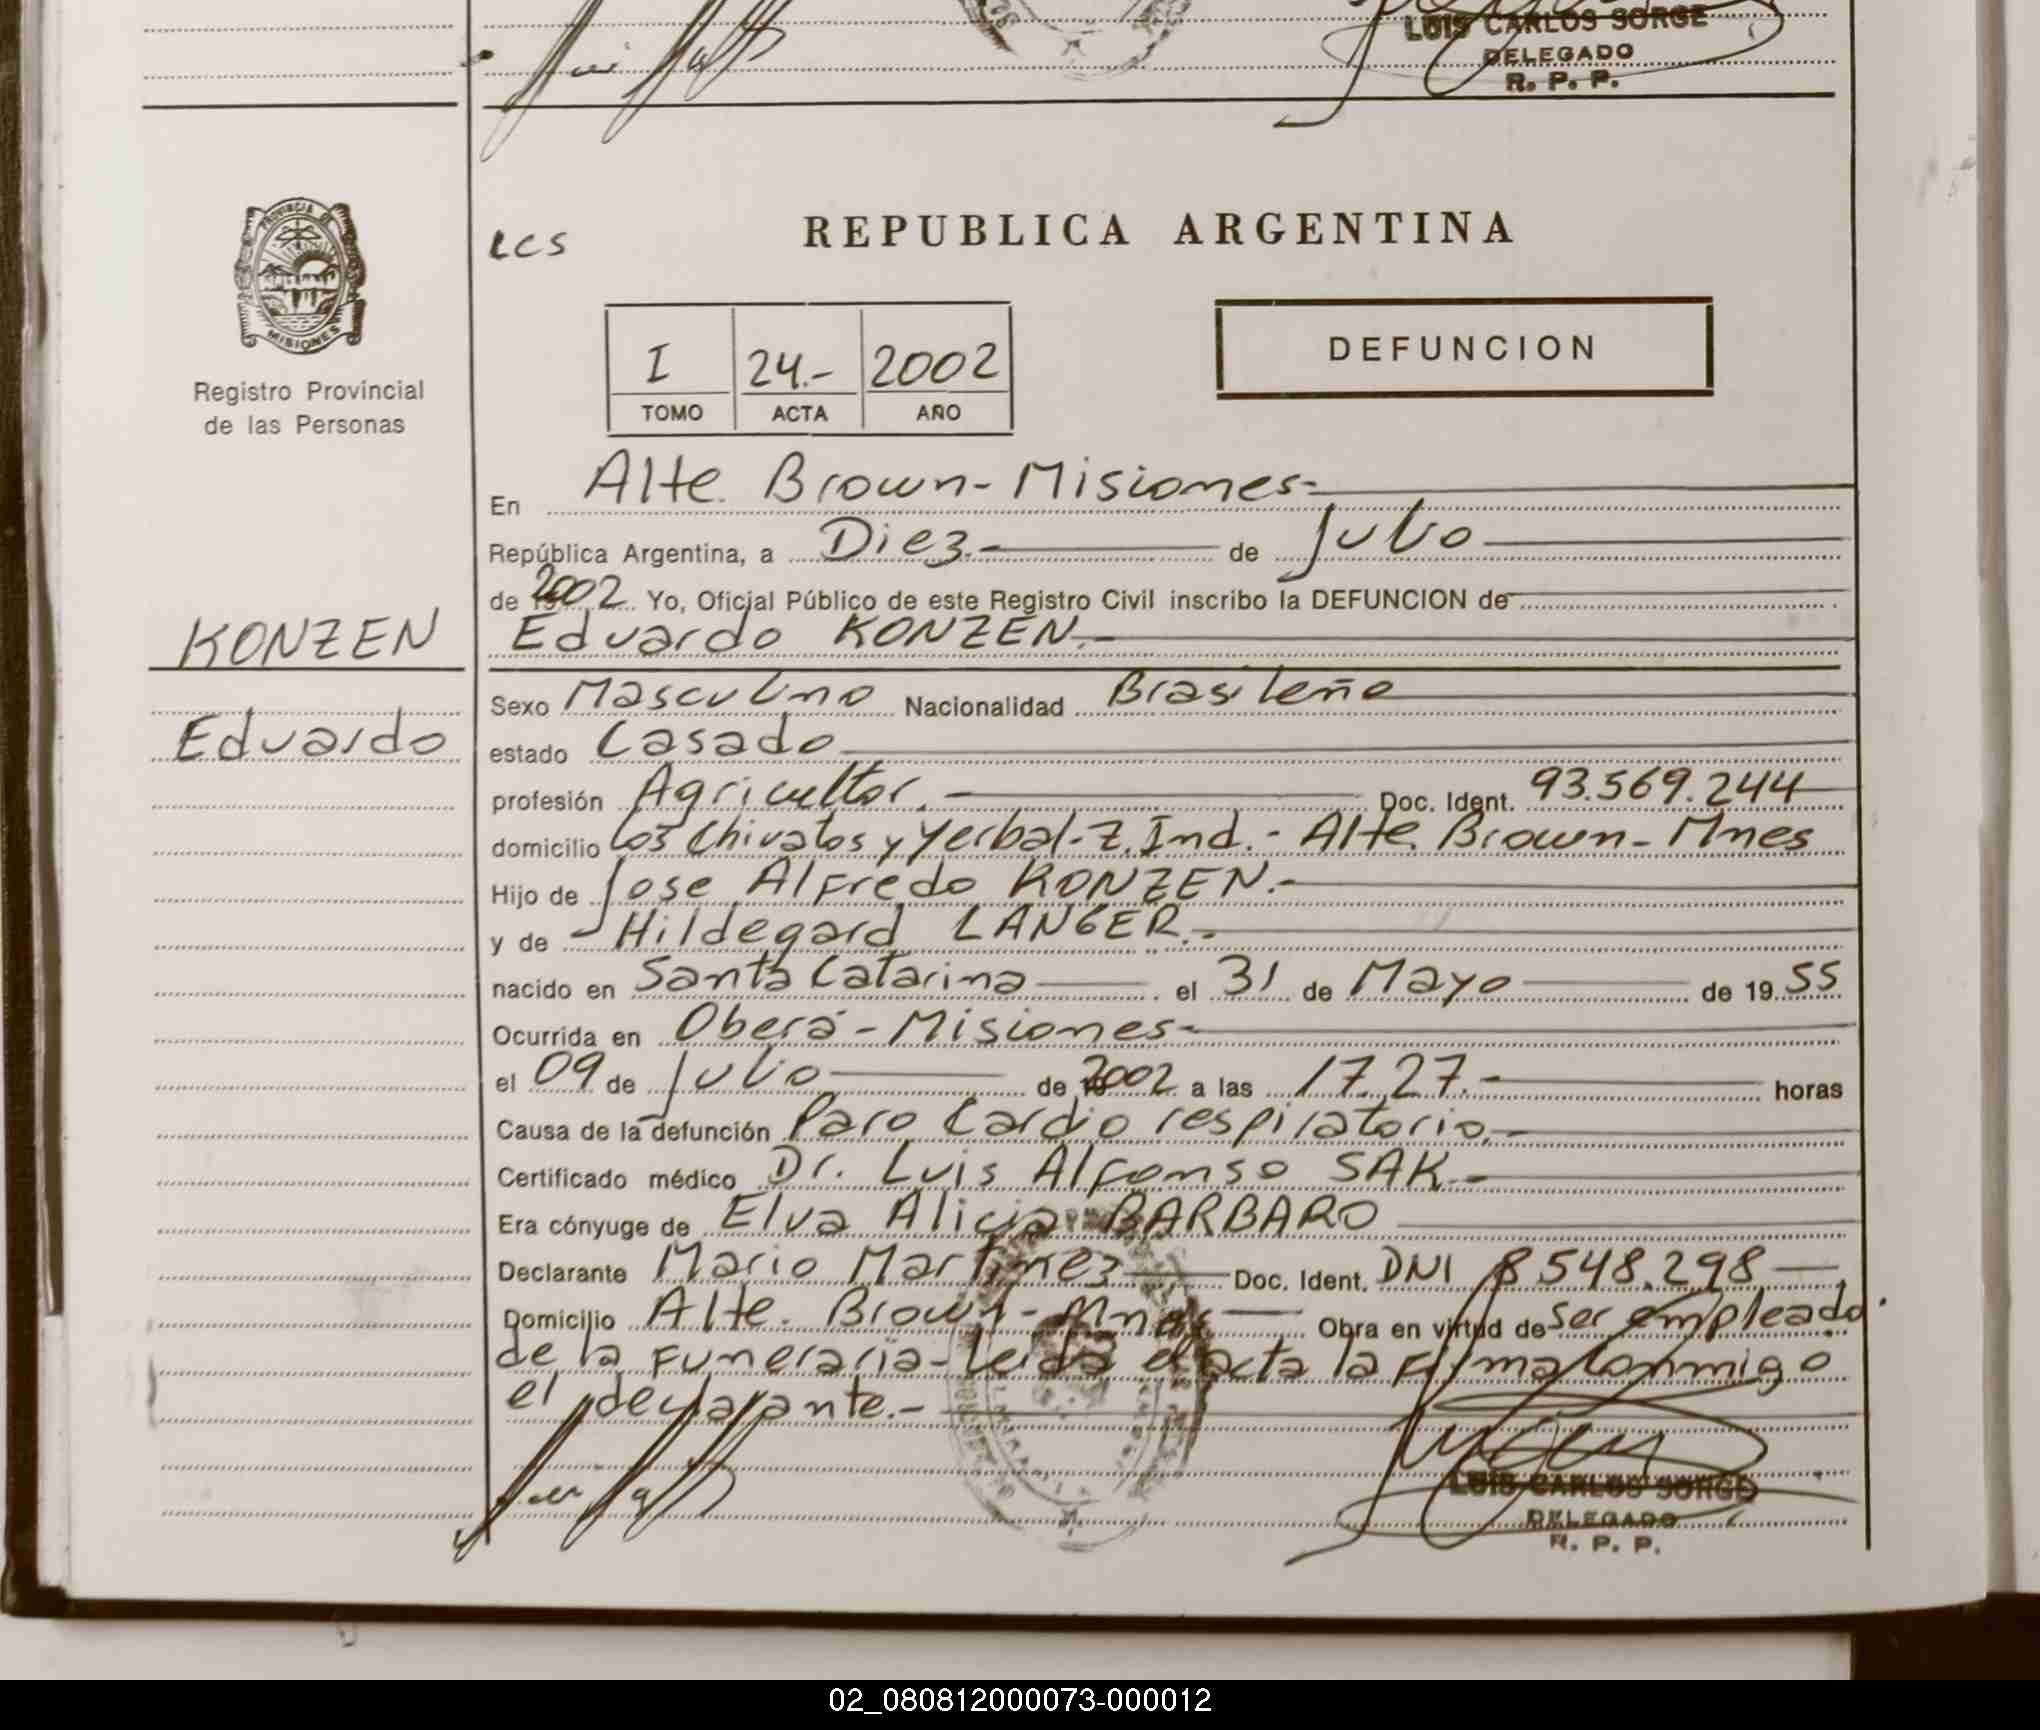 LUIS CARLOS SORGE
DELEGADO
R. P. P.
PROVINCIA DE
MISIONES
Registro Provincial
de las Personas
LCS
REPUBLICA ARGENTINA
I 24.- 2002
TOMO ACTA AÑO
DEFUNCION
En Alte. Brown - Misiones-
República Argentina, a Diez.- de Julio
de 2002 Yo, Oficial Público de este Registro Civil inscribo la DEFUNCION de
KONZEN
Eduardo KONZEN.-
Sexo Masculino Nacionalidad Brasileña
Eduardo
estado Casado
profesión Agricultor.- Doc. Ident. 93.569.244
domicilio Los Chivatos y Yerbal-Z.Ind.- Alte. Brown - Mnes
Hijo de Jose Alfredo KONZEN.-
y de Hildegard LANGER.-
nacido en Santa Catarina el 31 de Mayo de 1955
Ocurrida en Oberá - Misiones-
el 09 de Julio de 2002 a las 17.27.- horas
Causa de la defunción Paro Cardio respiratorio.-
Certificado médico Dr. Luis Alfonso SAK.-
Era cónyuge de Elva Alicia BARBARO
Declarante Mario Martinez Doc. Ident. DNI 8548.298
Domicilio Alte. Brown - Mnes Obra en virtud de ser empleado
de la Funeraria - Leida el acta la Firma Conmigo
el declarante.-
LUIS CARLOS SORGE
DELEGADO
R. P. P.
02_080812000073-000012